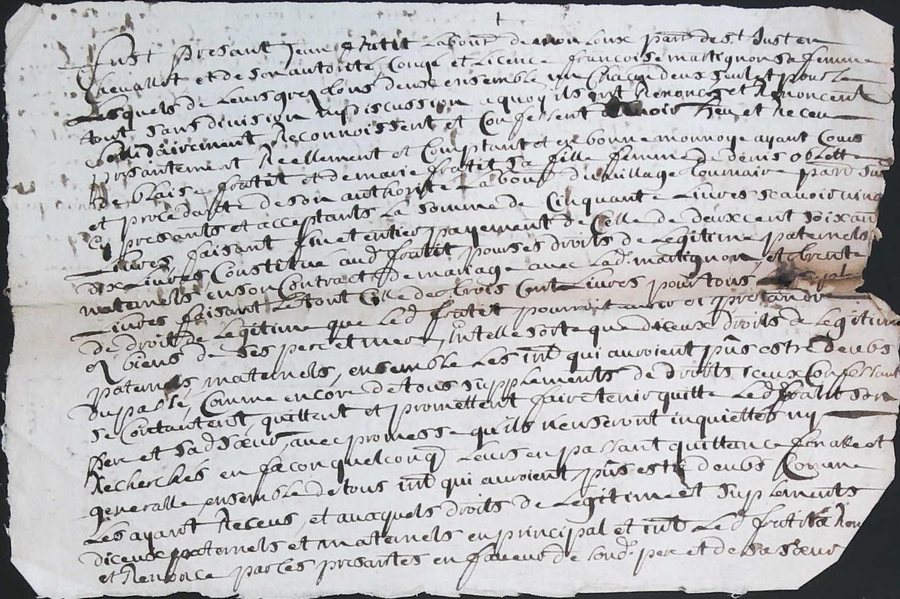 Fust presant Jeune fratit Labour de mouloux parr. de st Just en
Chevallet et de son authorité Congé et Licence francoise martignon sa femme
Lesquels de Leurs gre, Tous deux ensemble un Chacun deux seul et pour le
tout sans division ny discussion a quoy ils ont Renoncé et Renoncent
Sollidairement Reconnoissent et Confessent avoir Heu et Receu
presantement Reellement et Comptant et en bonne monnoye ayant Cours
de blaise fratit et de marie fratit sa fille femme de denis oblette
et procedante de son authorité Labour du village tournaire parr. sus
presants et acceptants La somme de Cinquante Livres
Livres faisant fin et entier payement de Celle de deux cent soixan
dix Livres Constitué aud. fratit pour ses droits de Legitime paternels
maternels en son Contract de mariage avec Lad. martignon, et trente
Livres faisant Le tout Celle de trois cent Livres pour tous
de droits de Legitime que Led. fratit pourroit avoir et pretandre
es biens de ses pere et mere, en telle sorte que diceux droits de Legitime
paternels maternels, ensemble Les int. qui auroient pus estre deubs
du passé, Comme encore de tous supplements de droits iceux Confessant
se Contantent, quittent et promettent faire tenir quitte Led. fratit son
frere et sad. sœur avec promesse qu'ils n'en seront inquiettes ny
Recherches en façon quelconq. Leurs en passant quittance finalle et
generalle, ensemble de tous int. qui auroient pus estre deubs Comme
Les ayant Receus, et auxquels droits de Legitime et suplements
diceux paternels et maternels en principal et int. Led. fratit a Ren
et Renonce par ces presantes en faveur de sond. pere et de sa sœur